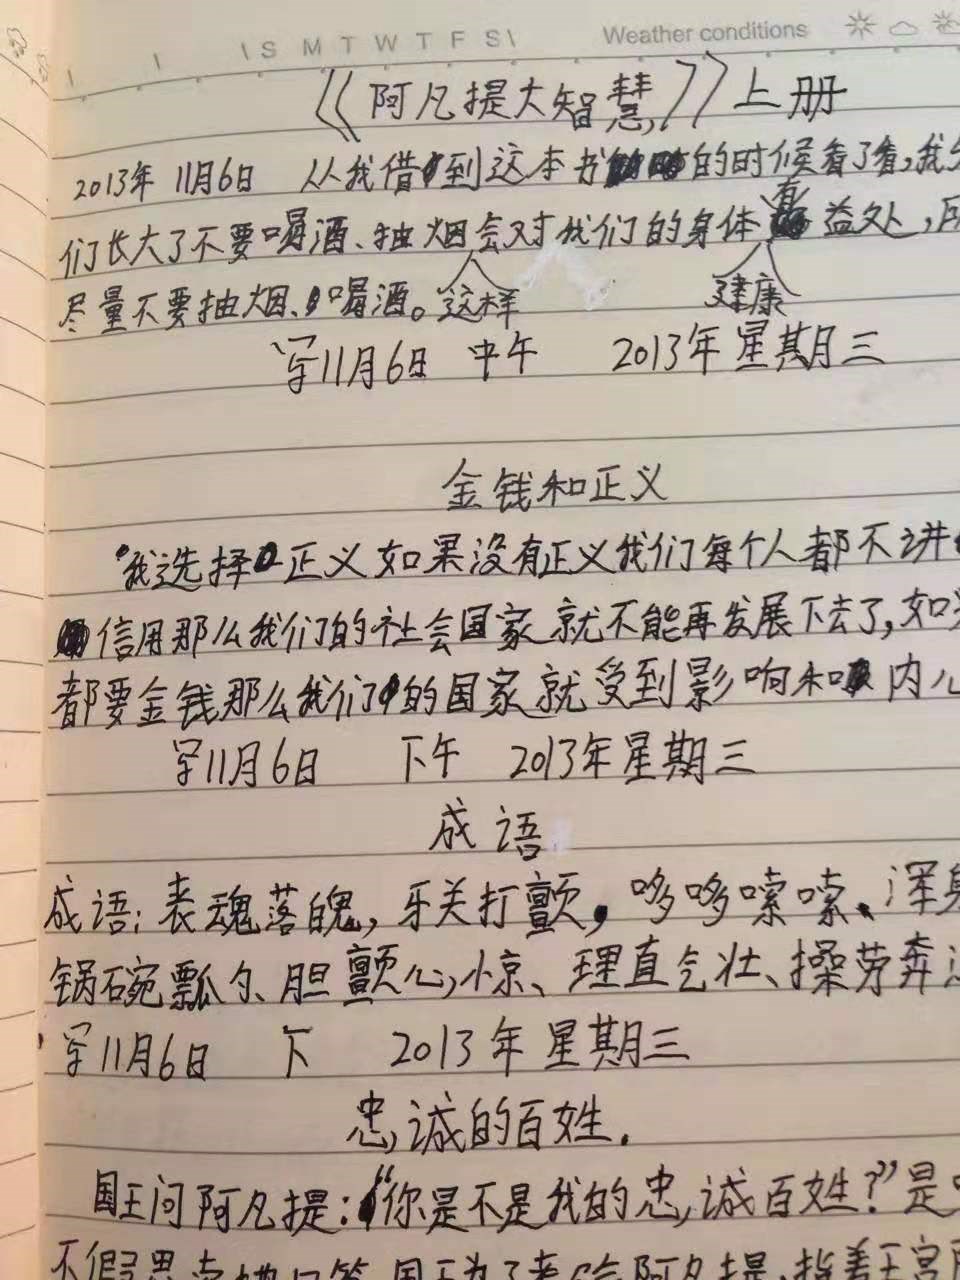 S M T W T F S Weather conditions
《阿凡提大智慧》上册
2013年 11月6日 从我借到这本书的时候看了看,我
们长大了不要喝酒、抽烟会对我们的身体有益处,
这样 健康
尽量不要抽烟、喝酒。
写11月6日 中午 2013年星期三
金钱和正义
我选择正义如果没有正义我们每个人都不讲
信用那么我们的社会国家就不能再发展下去了,如
都要金钱那么我们的国家就受到影响和内心
写11月6日 下午 2013年星期三
成语
成语:丧魂落魄,牙关打颤,哆哆嗦嗦、浑身
锅碗瓢勺、胆颤心惊、理直气壮、操劳奔
写11月6日 下 2013年星期三
忠诚的百姓.
国王问阿凡提:“你是不是我的忠诚百姓?”是
不假思索地回答,国王为了考验阿凡提,指着王宫